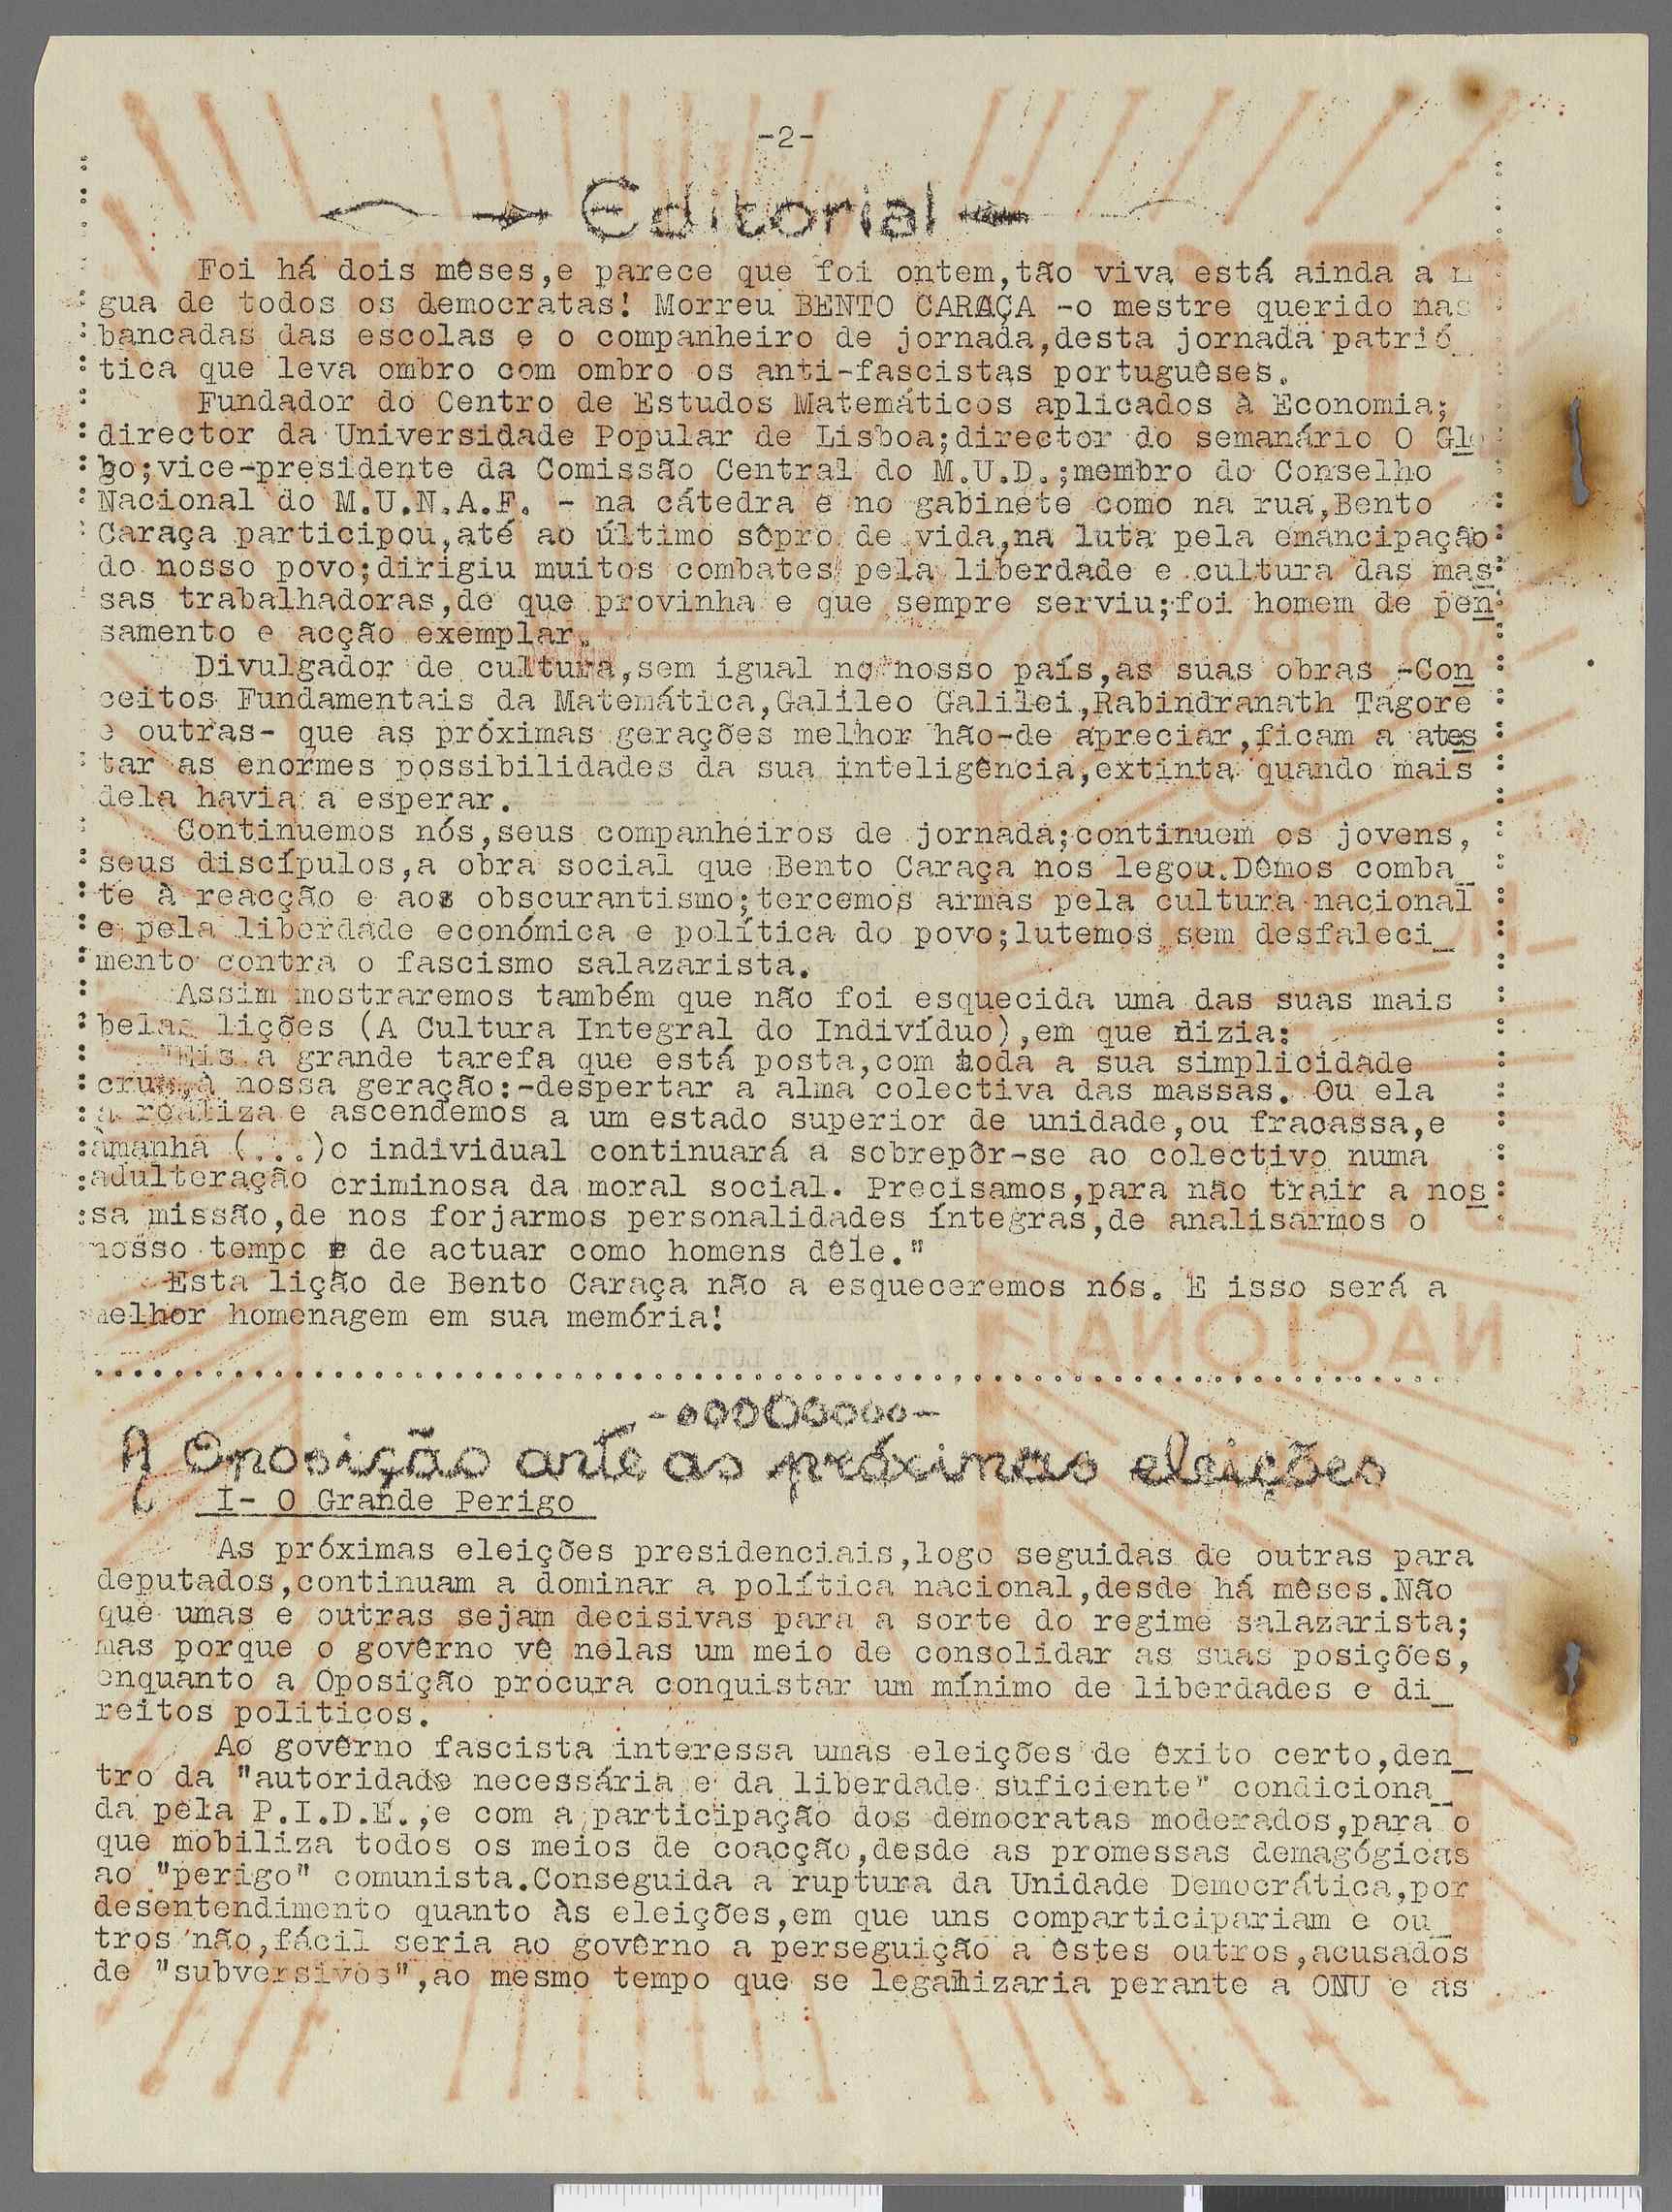 -2-
Editorial
Foi há dois mêses,e parece que foi ontem,tão viva está ainda a
gua de todos os democratas! Morreu BENTO CARAÇA -o mestre querido nas
bancadas das escolas e o companheiro de jornada,desta jornada patrió_
tica que leva ombro com ombro os anti-fascistas portuguêses.
Fundador do Centro de Estudos Matemáticos aplicados à Economia;
director da Universidade Popular de Lisboa;director do semanário O Glo
bo;vice-presidente da Comissão Central do M.U.D.;membro do Conselho
Nacional do M.U.N.A.F. - na cátedra e no gabinete como na rua,Bento
Caraça participou,até ao último sôpro de vida,na luta pela emancipação
do nosso povo;dirigiu muitos combates pela liberdade e cultura das mas
sas trabalhadoras,de que provinha e que sempre serviu;foi homem de pen
samento e acção exemplar.
Divulgador de cultura,sem igual no nosso país,as suas obras -Con
ceitos Fundamentais da Matemática,Galileo Galilei,Rabindranath Tagore
e outras- que as próximas gerações melhor hão-de apreciar,ficam a ates
tar as enormes possibilidades da sua inteligência,extinta quando mais
dela havia a esperar.
Continuemos nós,seus companheiros de jornada;continuem os jovens,
seus discípulos,a obra social que Bento Caraça nos legou.Dêmos comba_
te à reacção e aos obscurantismo;tercemos armas pela cultura nacional
e pela liberdade económica e política do povo;lutemos sem desfaleci_
mento contra o fascismo salazarista.
Assim mostraremos também que não foi esquecida uma das suas mais
belas lições (A Cultura Integral do Indivíduo),em que dizia:
"Eis a grande tarefa que está posta,com toda a sua simplicidade
crua,à nossa geração:-despertar a alma colectiva das massas. Ou ela
a realiza e ascendemos a um estado superior de unidade,ou fracassa,e
àmanhã (...)o individual continuará a sobrepôr-se ao colectivo numa
adulteração criminosa da moral social. Precisamos,para não trair a nos
sa missão,de nos forjarmos personalidades íntegras,de analisarmos o
nosso tempo e de actuar como homens dêle."
Esta lição de Bento Caraça não a esqueceremos nós. E isso será a
melhor homenagem em sua memória!
-ooOOoooo-
A Oposição ante as próximas eleições
I- O Grande Perigo
As próximas eleições presidenciais,logo seguidas de outras para
deputados,continuam a dominar a política nacional,desde há mêses.Não
que umas e outras sejam decisivas para a sorte do regime salazarista;
mas porque o govêrno vê nelas um meio de consolidar as suas posições,
enquanto a Oposição procura conquistar um mínimo de liberdades e di_
reitos politicos.
Ao govêrno fascista interessa umas eleições de êxito certo,den_
tro da "autoridade necessária e da liberdade suficiente" condiciona_
da pela P.I.D.E.,e com a participação dos democratas moderados,para o
que mobiliza todos os meios de coacção,desde as promessas demagógicas
ao "perigo" comunista.Conseguida a ruptura da Unidade Democrática,por
desentendimento quanto às eleições,em que uns comparticipariam e ou_
tros não,fácil seria ao govêrno a perseguição a êstes outros,acusados
de "subversivos",ao mesmo tempo que se legalizaria perante a ONU e as